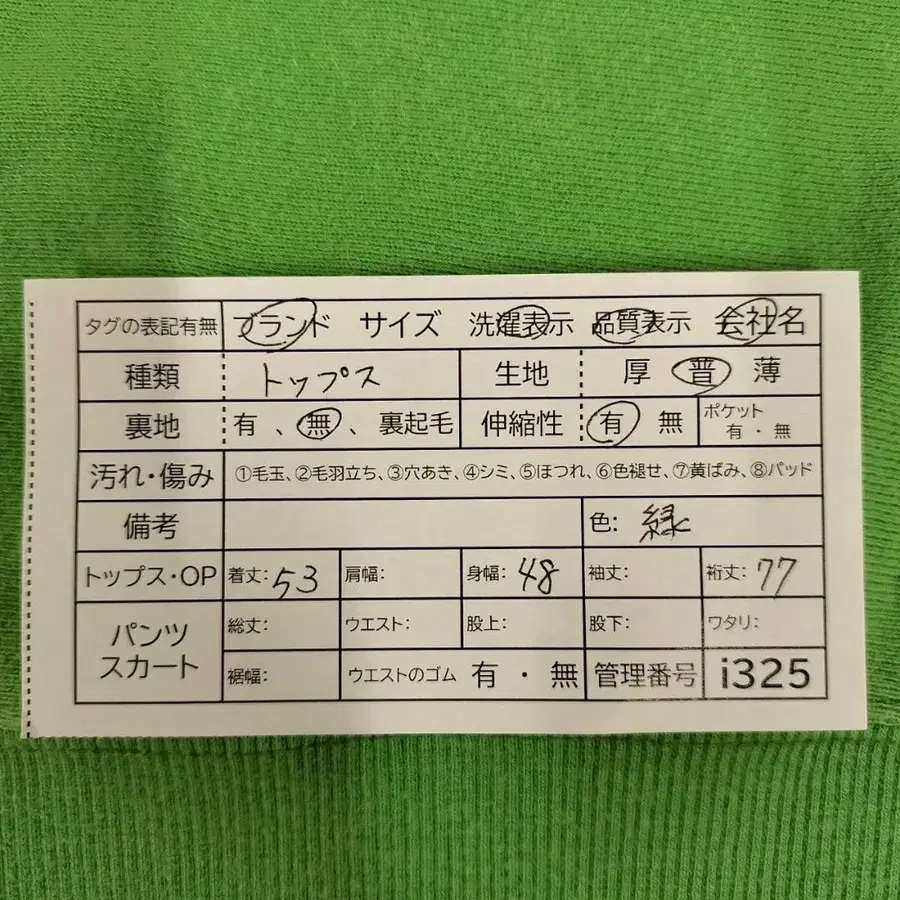 タグの表記有無 ブランド サイズ 洗濯表示 品質表示 会社名
種類 トップス 生地 厚 普 薄
裏地 有 、無、裏起毛 伸縮性 有 無 ポケット 有・無
汚れ・傷み ①毛玉、②毛羽立ち、③穴あき、④シミ、⑤ほつれ、⑥色褪せ、⑦黄ばみ、⑧パッド
備考 色: 緑
トップス・OP 着丈:53 肩幅: 身幅:48 袖丈: 裄丈:77
パンツ スカート 総丈: ウエスト: 股上: 股下: ワタリ:
裾幅: ウエストのゴム 有・無 管理番号 i325